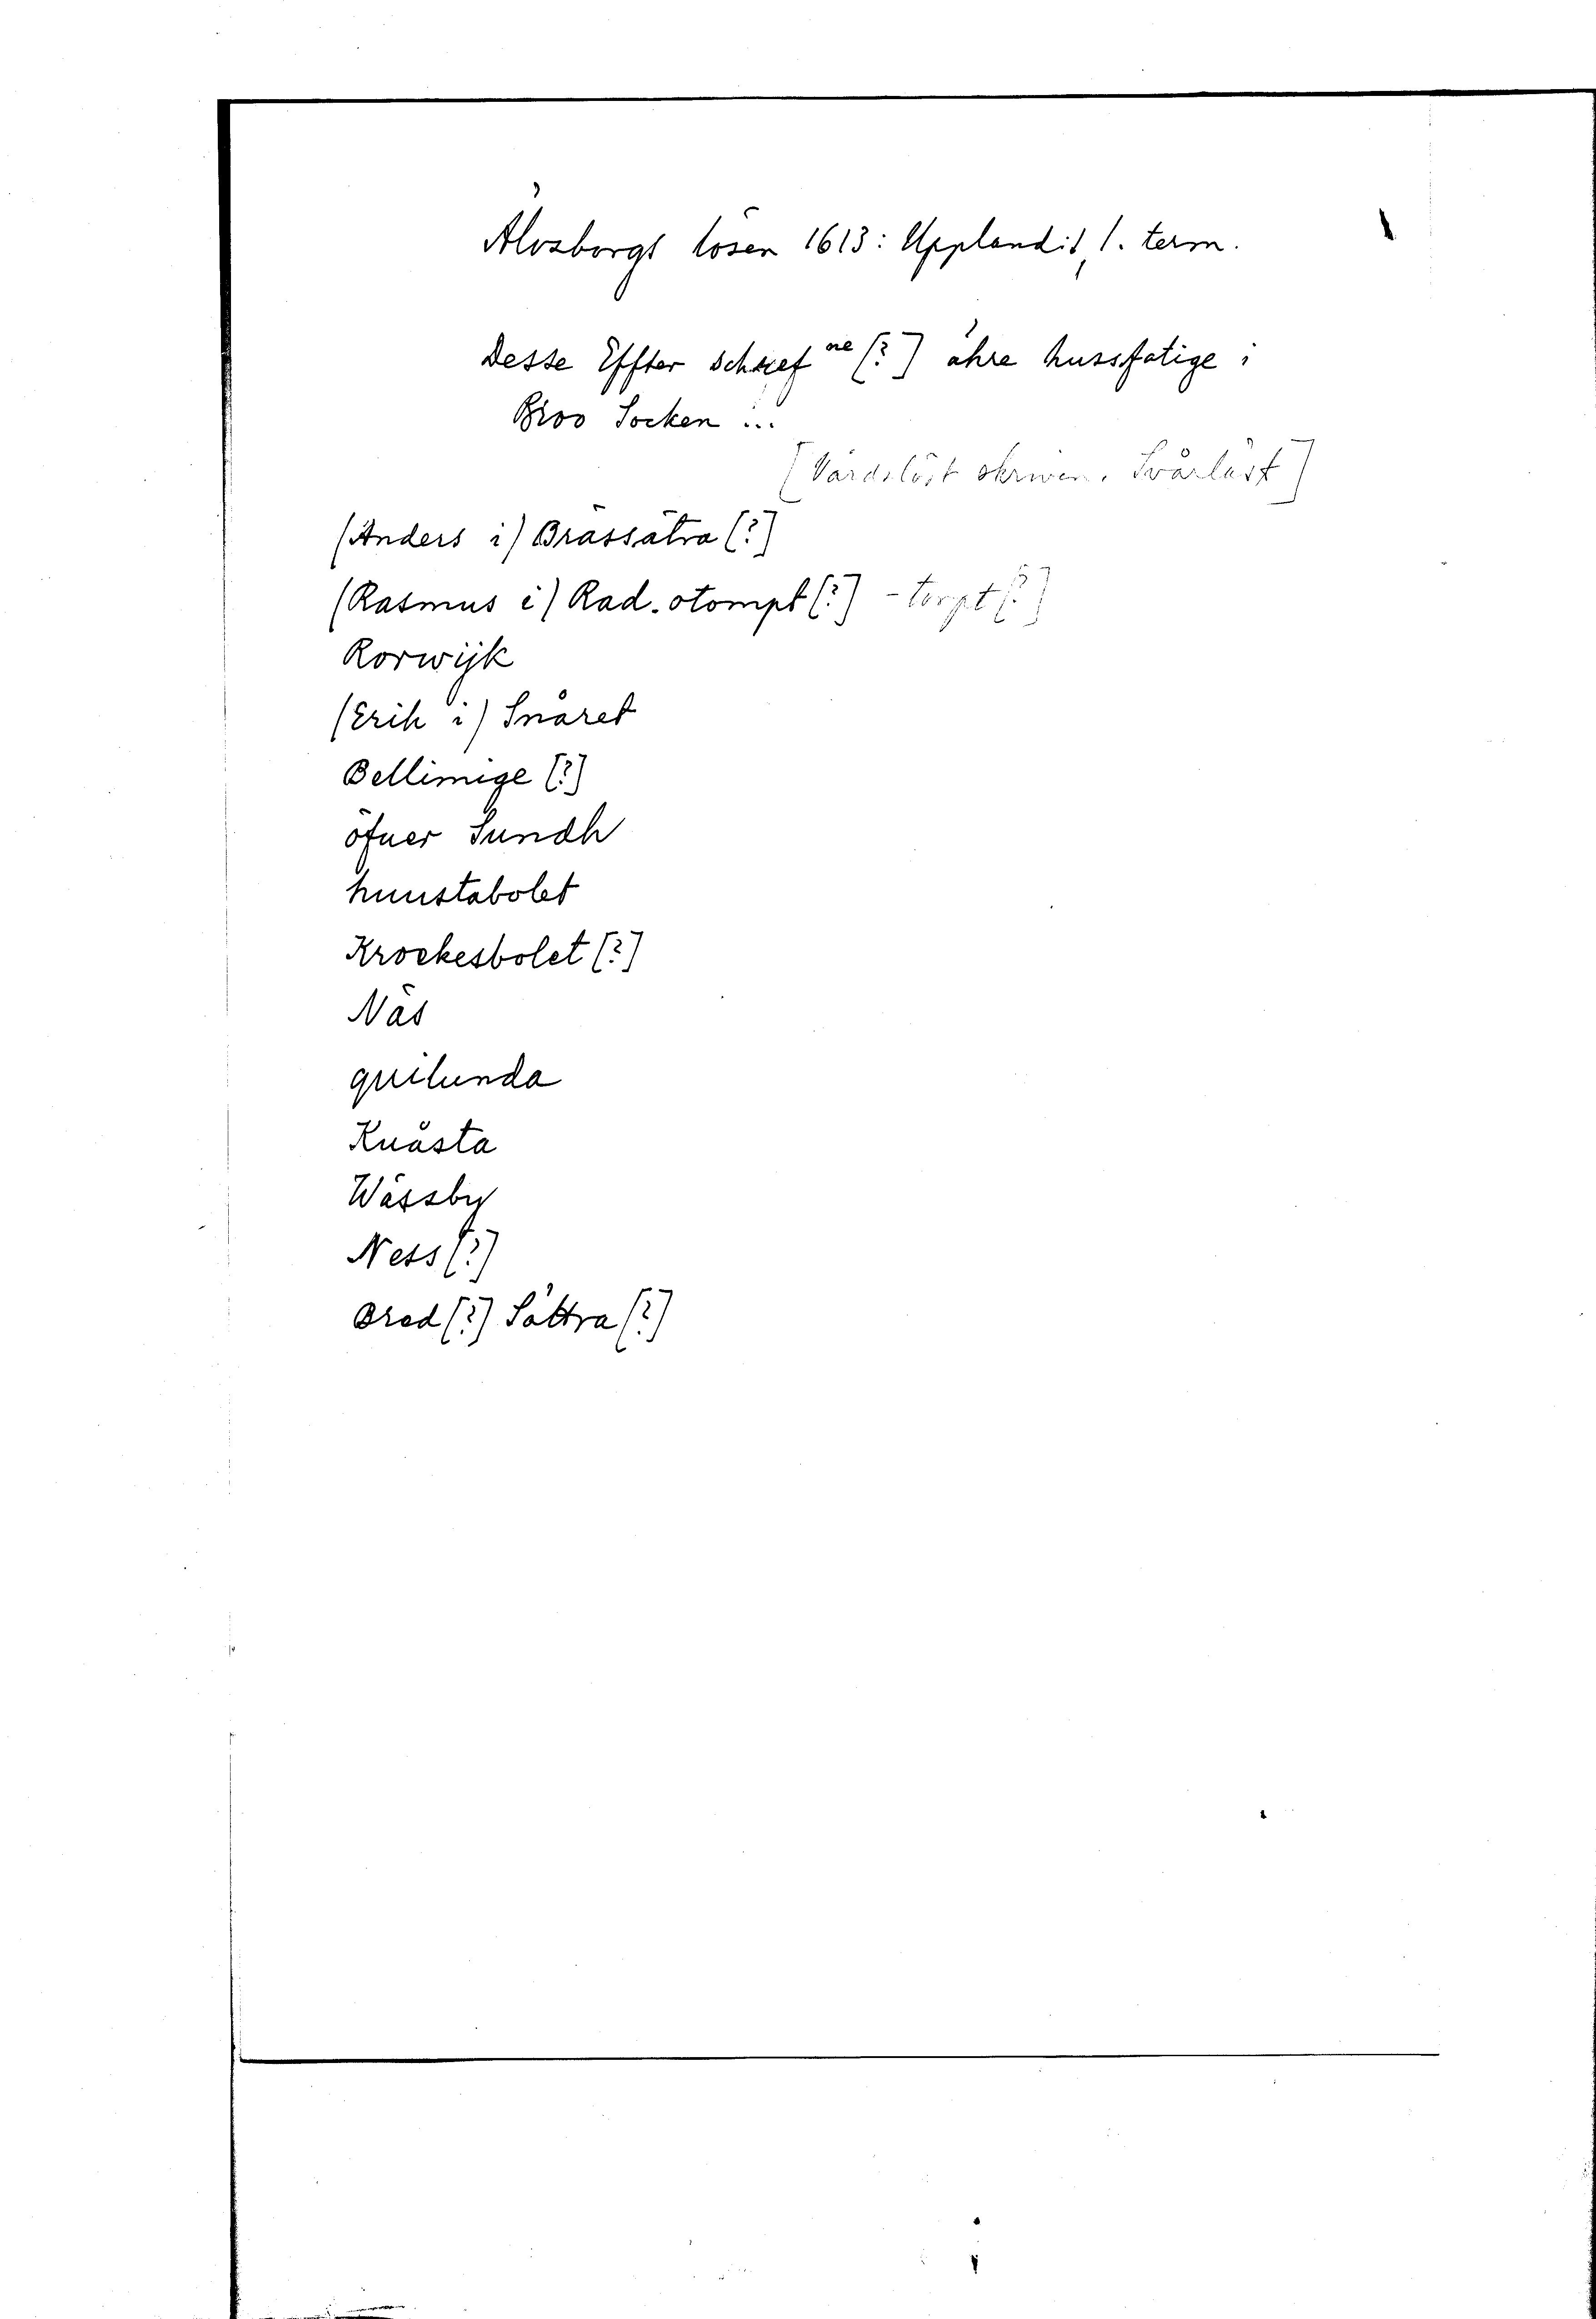 Älvsborgs lösen 1613: Upplandit, 1. term.
Desse Effter schref ne [?] ähre hussfatige i
Broo Socken ...
[Vårdslöst skriven. Svårläst]
(Anders i) Brässätra [?]
(Rasmus i) Rad.stompt [?] -torpt [?]
Rorwijk
(Erik i) Snåret
Bellimige [?]
öfuer Sundh
huustabolet
Krockesbolet [?]
Näs
quilunda
Knåsta
Wässby
Ness [?]
Bred [?] Sättra [?]